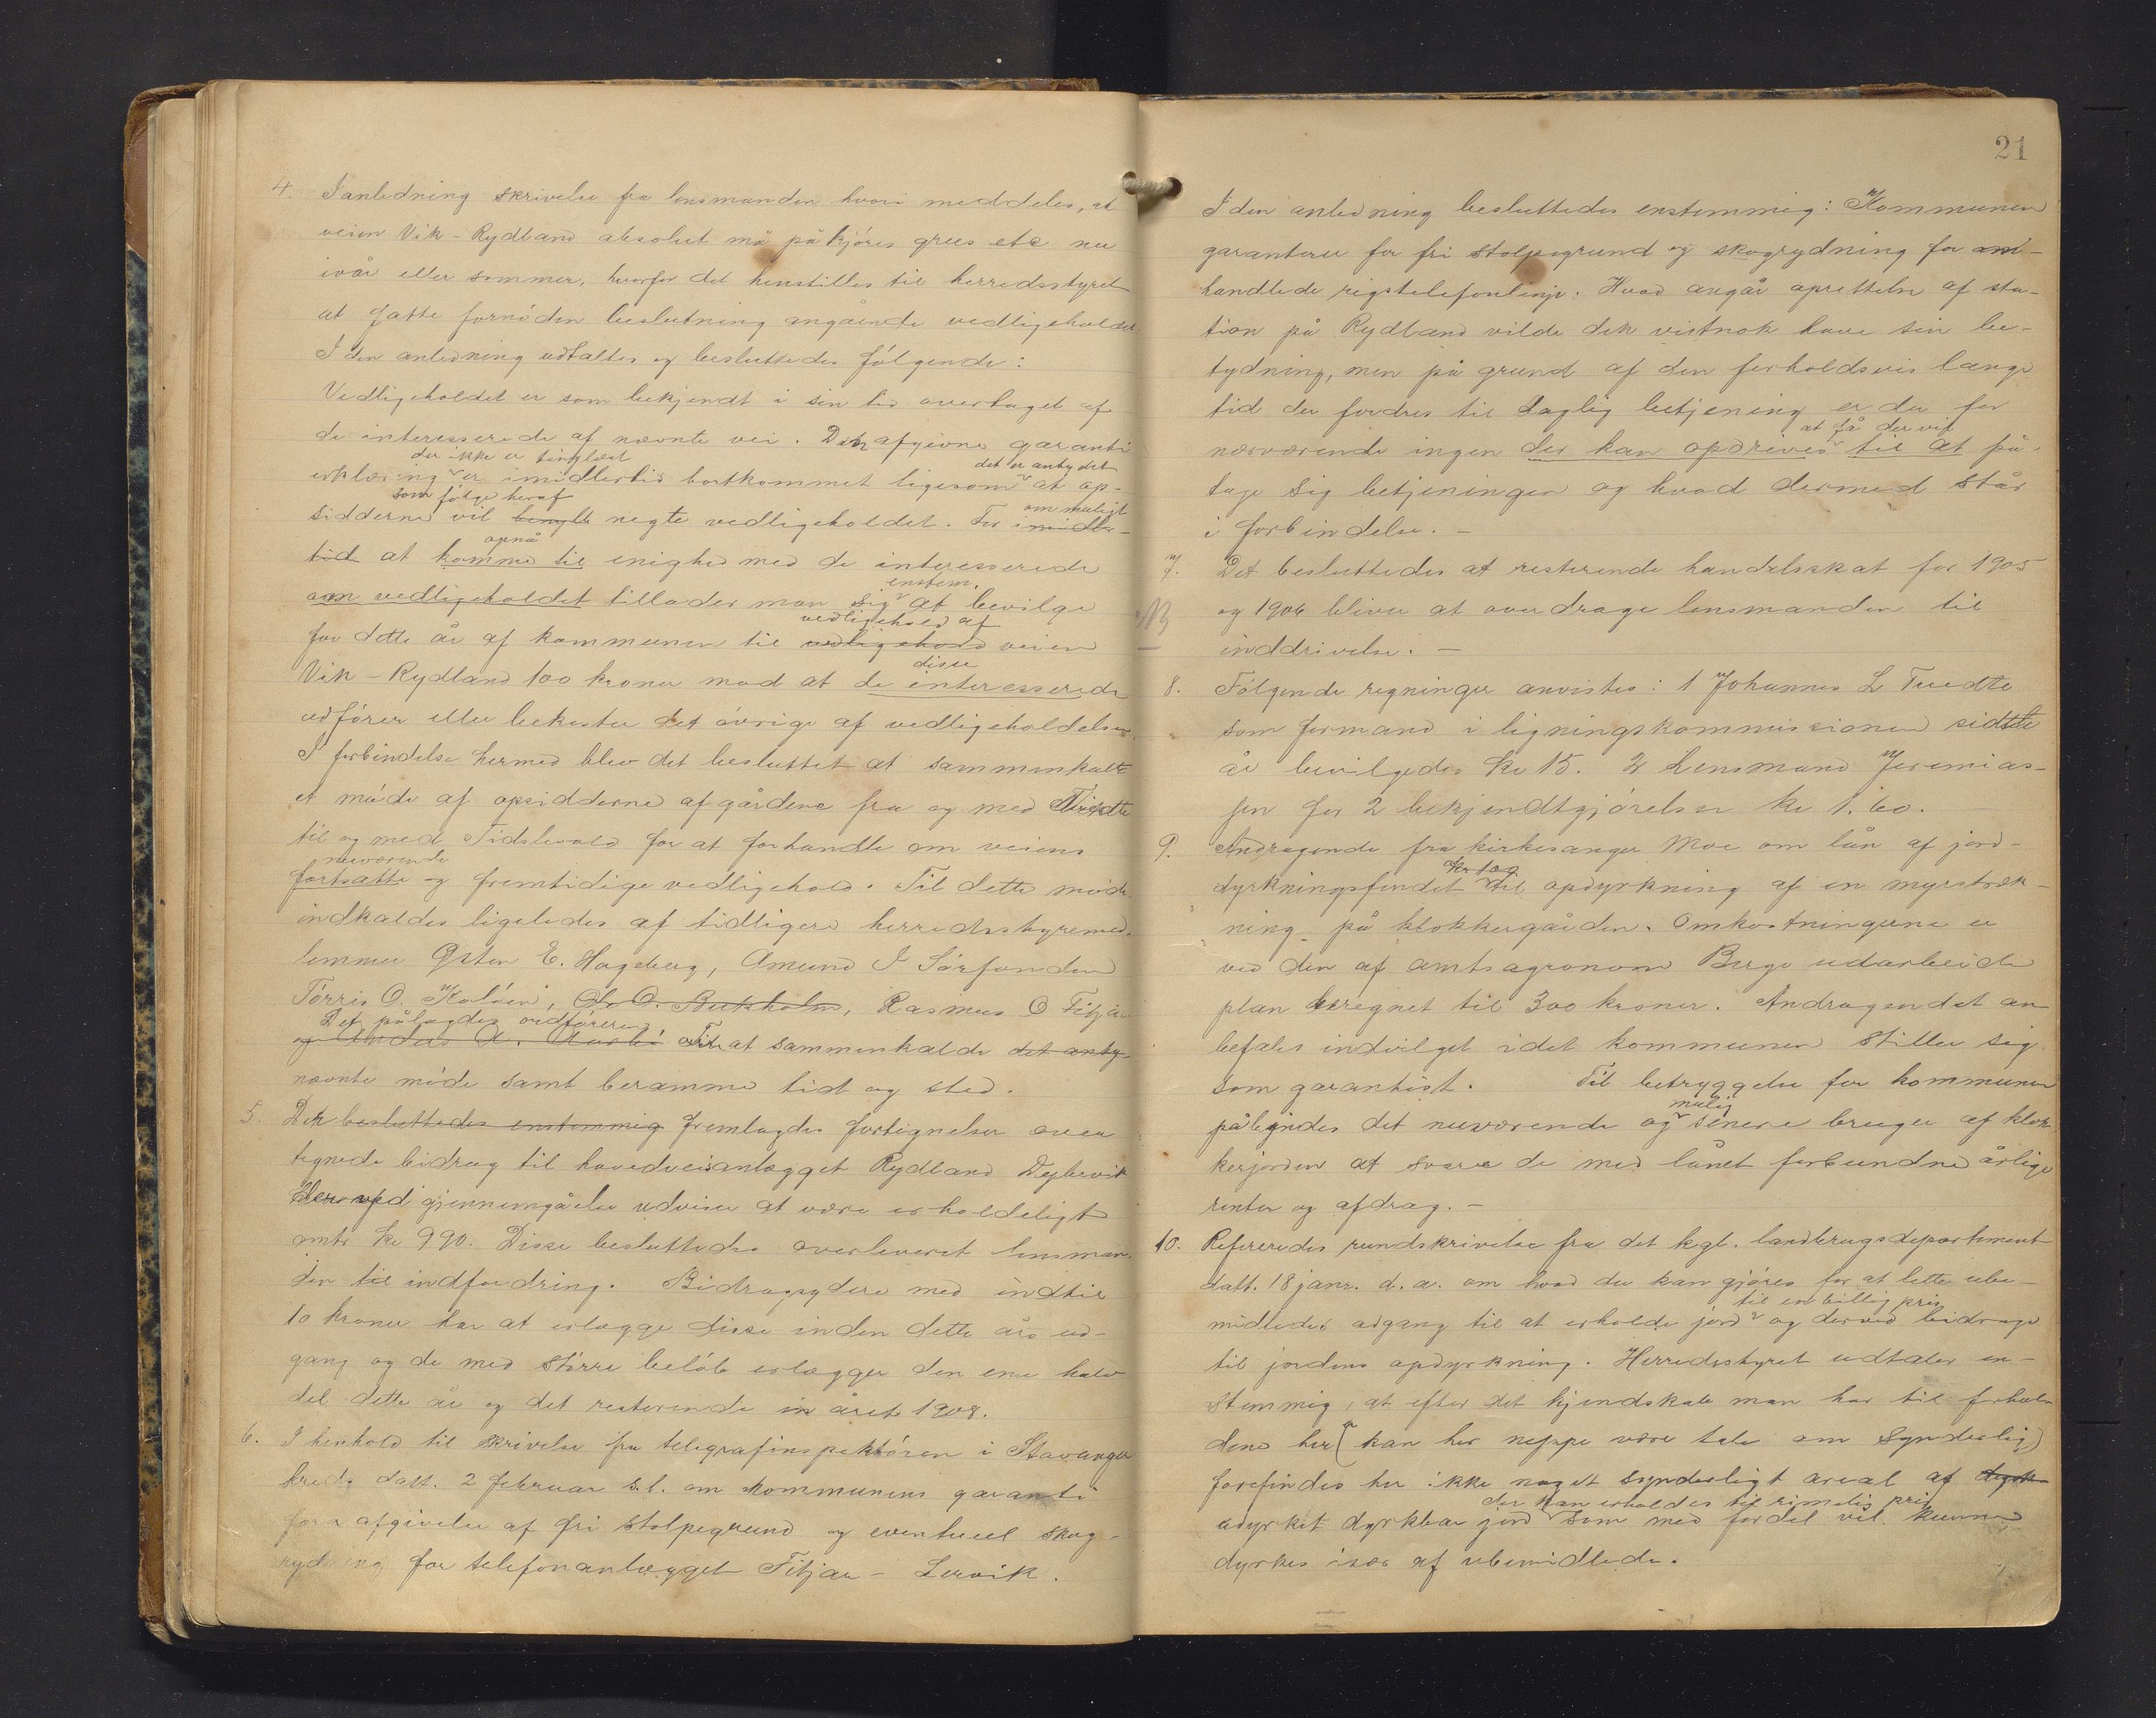 4. I anledning skrivelse fra lensmanden hvori meddeles, at
veien Vik - Rydland absolut må påkjöres grus etc nu
ivår eller sommer, hvorfor det henstilles til herredsstyret
at fatte fornöden beslutning angående vedligeholdet.
I den anledning udtaltes og besluttedes fölgende:
Vedligeholdet er som bekjendt i sin tid overtaget af
de interesserede af nævnte vei. Den afgivne garanti
der ikke er tinglæst det er antydet
erklæring er imidlertid bortkommet ligesom at op-
som fölge heraf om muligt
sidderne vil benytte negte vedligeholdet. For imidler-
opnå
tid at komme til enighed med de interesserede
enstem.
om vedligeholdet tillader man sig at bevilge
vedligehold af
for dette år af kommunen til vedligehold veien
disse
Vik - Rydland 100 kroner mod at de interesserede
udförer eller bekoster det övrige af vedligeholdelsen.
I forbindelse hermed blev det besluttet at sammenkalde
et möde af opsidderne af gårdene fra og med Tvedte
til og med Tidslevold for at forhandle om veiens
nuværende
fortsatte og fremtidige vedligehold. Til dette möde
indkaldes ligeledes af tidligere herredsstyremed-
lemmer Østen E. Hageberg, Amund I Sörfonden
Törris O. Kalöen, Ole O. Bukholm, Rasmus O Fitjar
Det pålagdes ordföreren
og Anders A. Aarbö Til at sammenkalde det anty-
nævnte möde samt beramme tid og sted.
5. Det besluttedes enstemmig fremlagdes fortegnelse over
tegnede bidrag til hovedveisanlægget Rydland Dyblevik
Herved gjennemgåelse udviser at være erholdeligt
omtr kr 990. Disse besluttedes overleveret lensman-
den til indfordring. Bidragsydere med indtil
10 kroner har at erlægge disse inden dette års ud-
gang og de med större belöb erlægger den ene halv
del dette år og det resterende in året 1908.
6. I henhold til skrivelse fra telegrafinspektören i Stavanger
kreds datt. 2 februar s.l. om kommunens garanti
for afgivelse af fri stolpegrund og eventuel skog-
rydning for telefonanlægget Fitjar - Lervik.
21
I den anledning besluttedes enstemmig: Kommunen
garanterer for fri stolpegrund og skogrydning for om-
handlede rigstelefonlinje. Hvad angår oprettelse af sta-
tion på Rydland vilde dek vistnok have sin be-
tydning, men på grund af den forholdsvis lange
tid der fordres til daglig betjening er der for
at få der vil
nærværende ingen der kan opdrives til at på-
tage sig betjeningen og hvad dermed står
i forbindelse. -
7. Det besluttedes at resterende handelsskat for 1905
NB og 1906 bliver at overdrage lensmanden til
inddrivelse. -
8. Fölgende regninger anvistes: 1 Johannes L Tvedte
som formand i ligningskommissionen sidste
år bevilgedes kr 15. 2 Lensmand Jeremias-
sen for 2 bekjendtgjörelser kr 1.60.
9. Andragende fra kirkesanger Moe om lån af jord-
kr 200
dyrkningsfondet til opdyrkning af en myrstræk-
ning på klokkergården. Omkostningerne er
ved den af amtsagronom Berge udarbeide
plan beregnet til 300 kroner. Andragendet an-
befales indvilget idet kommunen stiller sig
som garantist. Til betryggelse for kommunen
mulig
påligndes det nuværende og senere bruger af klok-
kerjorden at svare de med lånet forbundne årlige
renter og afdrag. -
10. Refereredes rundskrivelse fra det kgl. landbrugsdepartement
datt. 18 janr. d.a. om hvad der kan gjöres for at lette ube-
til en billig pris
midledes adgang til at erholde jord og derved bidrage
til jordens opdyrkning. Herredsstyret udtaler en-
stemmig, at efter det kjendskab man har til forhol-
dene her (kan her neppe være tale om synderlig)
forefindes her ikke noget synderligt areal af dyrk-
der kan erholdes til rimelig pris
udyrket dyrkbar jord som med fordel vil kunne
dyrkes især af ubemidlede.